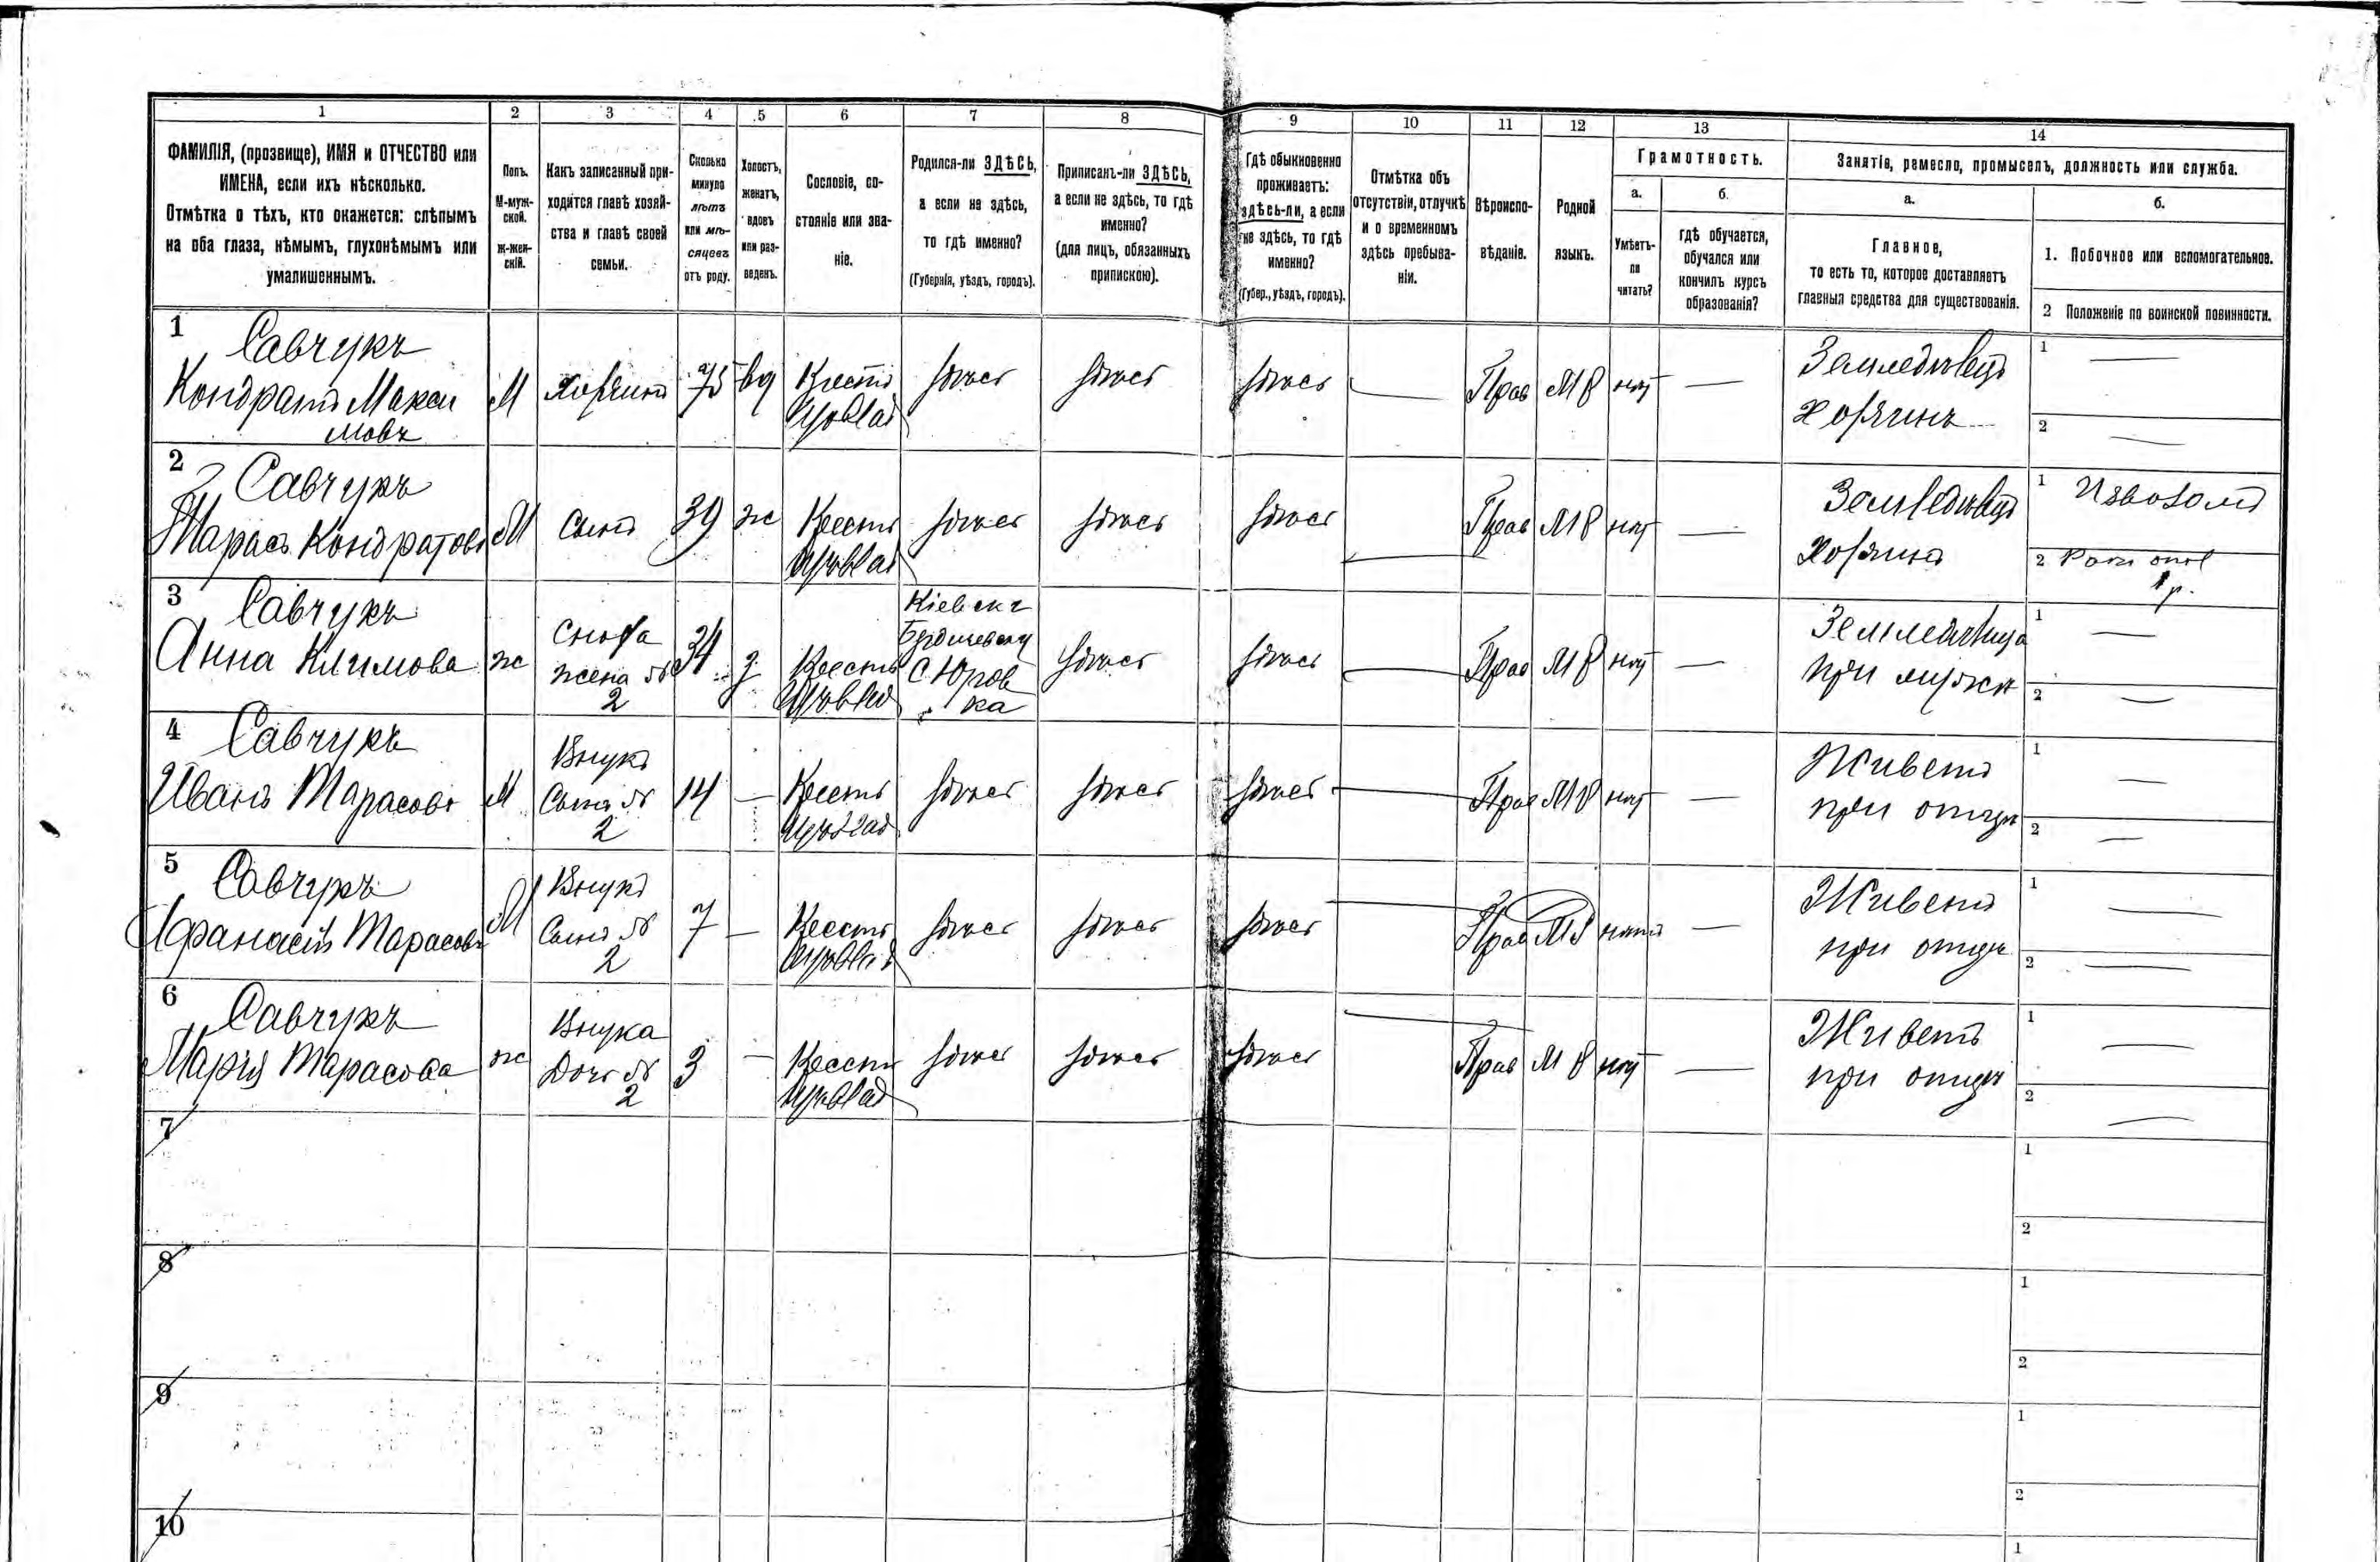 1 2 3 4 5 6 7 8 9 10 11 12 13 14
ФАМИЛІЯ, (прозвище), ИМЯ и ОТЧЕСТВО или
ИМЕНА, если ихъ нѣсколько.
Отмѣтка о тѣхъ, кто окажется: слѣпымъ
на оба глаза, нѣмымъ, глухонѣмымъ или
умалишеннымъ.
Полъ.
М-муж-
ской.
ж-жен-
скій.
Какъ записанный при-
ходится главѣ хозяй-
ства и главѣ своей
семьи.
Сколько
минуло
лѣтъ
или мѣ-
сяцевъ
отъ роду.
Холостъ,
женатъ,
вдовъ
или раз-
веденъ.
Сословіе, со-
стояніе или зва-
ніе.
Родился-ли ЗДѢСЬ,
а если не здѣсь,
то гдѣ именно?
(Губернія, уѣздъ, городъ).
Приписанъ-ли ЗДѢСЬ,
а если не здѣсь, то гдѣ
именно?
(для лицъ, обязанныхъ
припискою).
Гдѣ обыкновенно
проживаетъ:
здѣсь-ли, а если
не здѣсь, то гдѣ
именно?
(Губер., уѣздъ, городъ).
Отмѣтка объ
отсутствіи, отлучкѣ
и о временномъ
здѣсь пребыва-
ніи.
Вѣроиспо-
вѣданіе.
Родной
языкъ.
Грамотность.
а.
Умѣетъ-
ли
читать?
б.
гдѣ обучается,
обучался или
кончилъ курсъ
образованія?
Занятіе, ремесло, промыселъ, должность или служба.
а.
Главное,
то есть то, которое доставляетъ
главныя средства для существованія.
б.
1. Побочное или вспомогательное.
2 Положеніе по воинской повинности.
1 Савчукъ
Кондратъ Макси
мовъ
М
Хозяинъ
75
вд
Крестъ
здѣсь
здѣсь
здѣсь
—
Прав
М Р
нѣт
—
Земледѣлец
Хозяинъ
1 —
2 —
2 Савчукъ
Тарасъ Кондратовъ
М
Сынъ
39
ж
Крестъ
здѣсь
здѣсь
здѣсь
—
Прав
М Р
нѣт
—
Земледѣлец
Хозяинъ
1 Извозомъ
2
3 Савчукъ
Анна Климова
ж
Сноха
жена №
2
34
з
Крестъ
Кіевск
Бердичевск
С. Юров
ка
здѣсь
здѣсь
—
Прав
М Р
нѣт
—
при мужѣ
1 —
2 —
4 Савчукъ
Иванъ Тарасовъ
М
Внукъ
Сынъ №
2
14
—
Крестъ
здѣсь
здѣсь
здѣсь
—
Прав
М Р
нѣт
—
Живетъ
при отцѣ
1 —
2 —
5 Савчукъ
Афанасій Тарасовъ
М
Внукъ
Сынъ №
2
7
—
Крестъ
здѣсь
здѣсь
здѣсь
—
Прав
М Р
нѣтъ
—
Живетъ
при отцѣ
1 —
2 —
6 Савчукъ
Марія Тарасова
ж
Внука
Дочь №
2
3
—
Крестъ
здѣсь
здѣсь
здѣсь
—
Прав
М Р
нѣт
—
Живетъ
при отцѣ
1 —
2 —
7
1
2
8
1
2
9
1
2
10
1